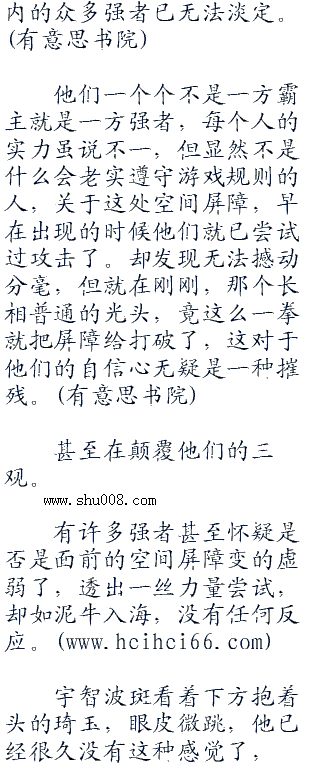 内的众多强者已无法淡定。
(有意思书院)
他们一个个不是一方霸
主就是一方强者，每个人的
实力虽说不一，但显然不是
什么会老实遵守游戏规则的
人，关于这处空间屏障，早
在出现的时候他们就已尝试
过攻击了。却发现无法撼动
分毫，但就在刚刚，那个长
相普通的光头，竟这么一拳
就把屏障给打破了，这对于
他们的自信心无疑是一种摧
残。(有意思书院)
甚至在颠覆他们的三
观。
www.shu008.com
有许多强者甚至怀疑是
否是面前的空间屏障变的虚
弱了，透出一丝力量尝试，
却如泥牛入海，没有任何反
应。(www.hcihci66.com)
宇智波斑看着下方抱着
头的琦玉，眼皮微跳，他已
经很久没有这种感觉了，